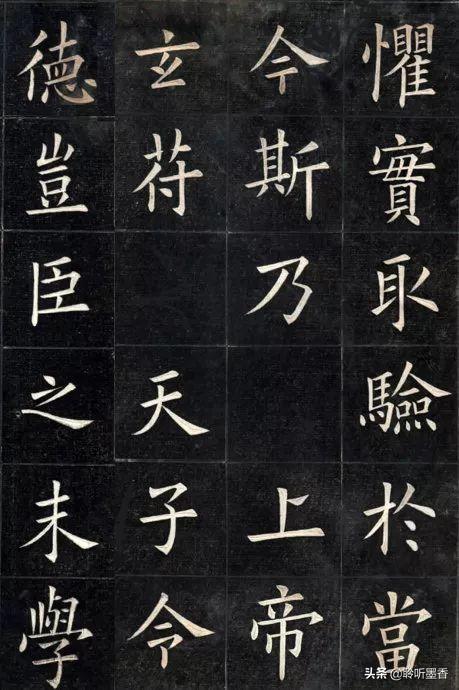 懼實取驗於當
今斯乃上帝
玄苻天子令
德豈臣之末學
头条@聆听墨香